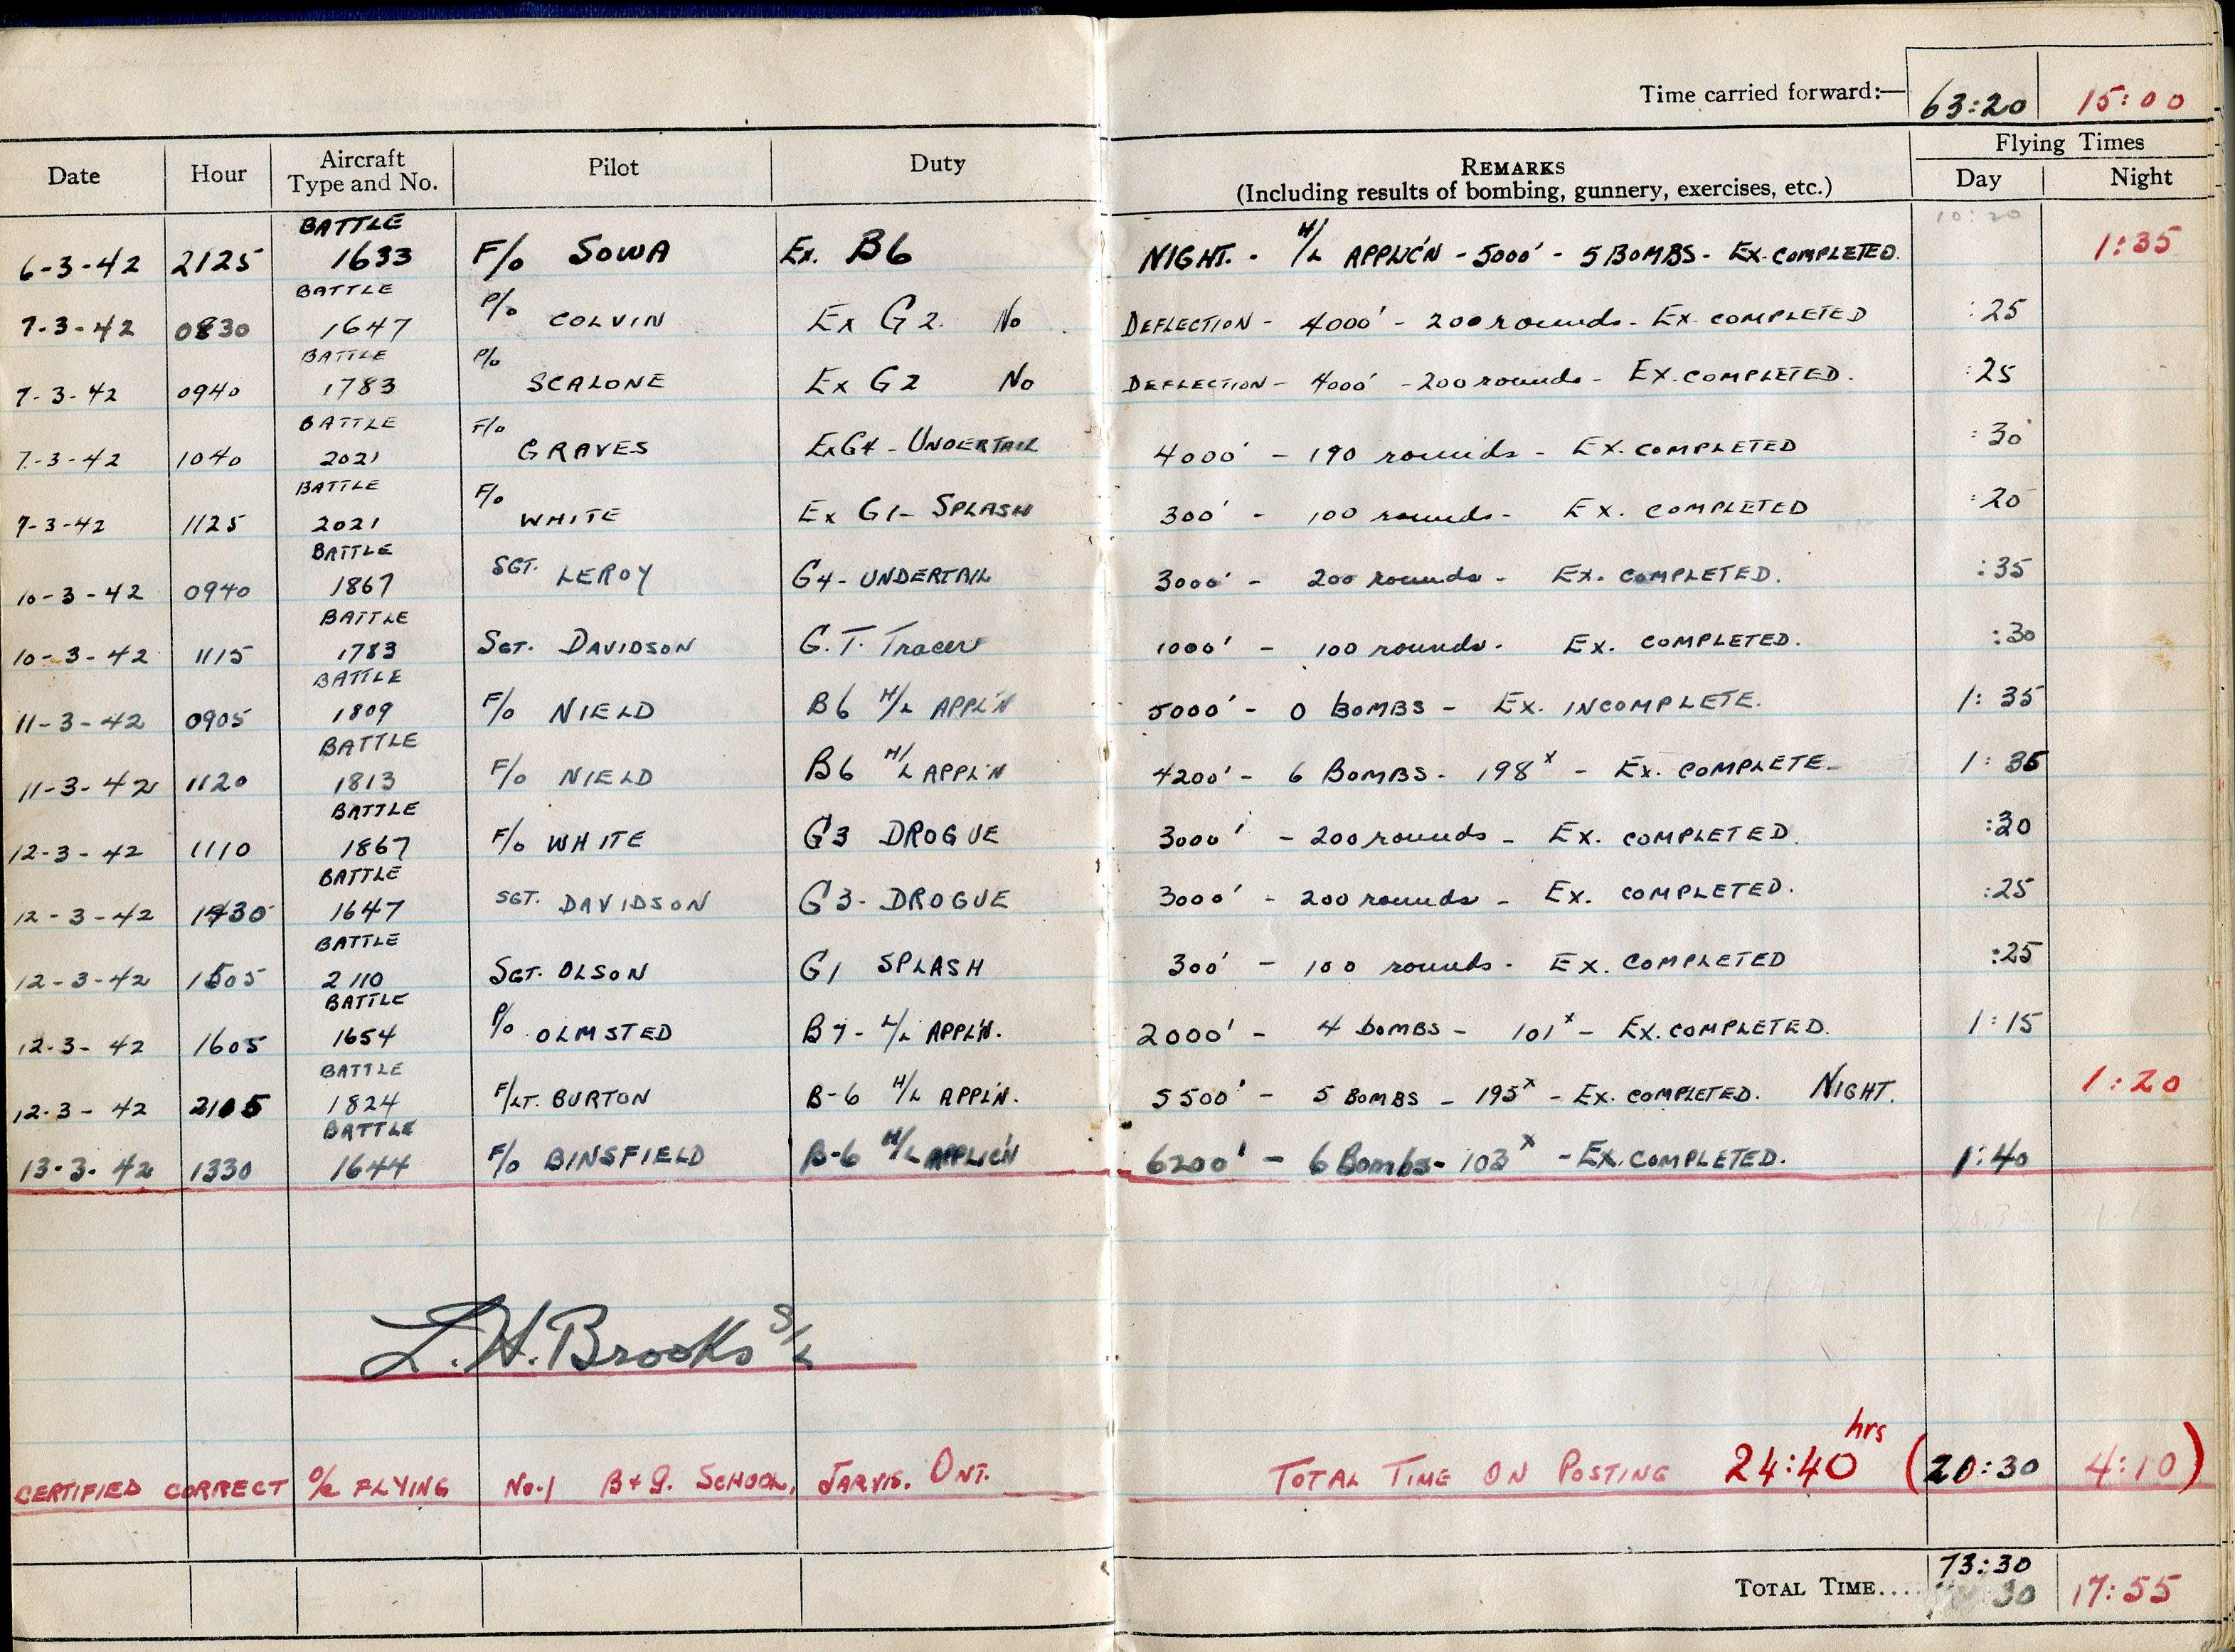 Time carried forward:— 63:20 15:00
Date Hour Aircraft Type and No. Pilot Duty REMARKS (Including results of bombing, gunnery, exercises, etc.) Flying Times Day Night
10:20
6-3-42 2125 BATTLE 1633 F/O SOWA Ex. B6 NIGHT. - H/L APPLIC'N - 5000' - 5 BOMBS - EX. COMPLETED. 1:35
7-3-42 0830 BATTLE 1647 P/O COLVIN Ex G2. No DEFLECTION - 4000' - 200 rounds - EX. COMPLETED :25
7-3-42 0940 BATTLE 1783 P/O SCALONE Ex G2 No DEFLECTION - 4000' - 200 rounds - EX. COMPLETED. :25
7-3-42 1040 BATTLE 2021 F/O GRAVES Ex G4 - UNDERTAIL 4000' - 190 rounds - EX. COMPLETED :30
7-3-42 1125 BATTLE 2021 F/O WHITE Ex G1 - SPLASH 300' - 100 rounds - EX. COMPLETED :20
10-3-42 0940 BATTLE 1867 SGT. LEROY G4 - UNDERTAIL 3000' - 200 rounds - EX. COMPLETED. :35
10-3-42 1115 BATTLE 1783 SGT. DAVIDSON G.T. Tracer 1000' - 100 rounds. EX. COMPLETED. :30
11-3-42 0905 BATTLE 1809 F/O NIELD B6 H/L APPL'N 5000' - 0 BOMBS - EX. INCOMPLETE. 1:35
11-3-42 1120 BATTLE 1813 F/O NIELD B6 H/L APPL'N 4200' - 6 BOMBS - 198x - EX. COMPLETE - 1:35
12-3-42 1110 BATTLE 1867 F/O WHITE G3 DROGUE 3000' - 200 rounds - EX. COMPLETED. :20
12-3-42 1430 BATTLE 1647 SGT. DAVIDSON G3 - DROGUE 3000' - 200 rounds - EX. COMPLETED. :25
12-3-42 1505 BATTLE 2110 SGT. OLSON G1 SPLASH 300' - 100 rounds - EX. COMPLETED :25
12-3-42 1605 BATTLE 1654 P/O OLMSTED B7 - L/L APPL'N. 2000' - 4 BOMBS - 101x - EX. COMPLETED. 1:15
12-3-42 2105 BATTLE 1824 F/LT. BURTON B-6 H/L APPL'N. 5500' - 5 BOMBS - 195x - EX. COMPLETED. NIGHT. 1:20
13-3-42 1330 BATTLE 1644 F/O BINSFIELD B-6 H/L APPLIC'N 6200' - 6 Bombs - 103x - EX. COMPLETED. 1:40
L.H. Brooks S/L
CERTIFIED CORRECT O/C FLYING No.1 B+G. SCHOOL, JARVIS. ONT. TOTAL TIME ON POSTING 24:40 hrs (20:30 4:10)
73:30
TOTAL TIME.... 30 17:55